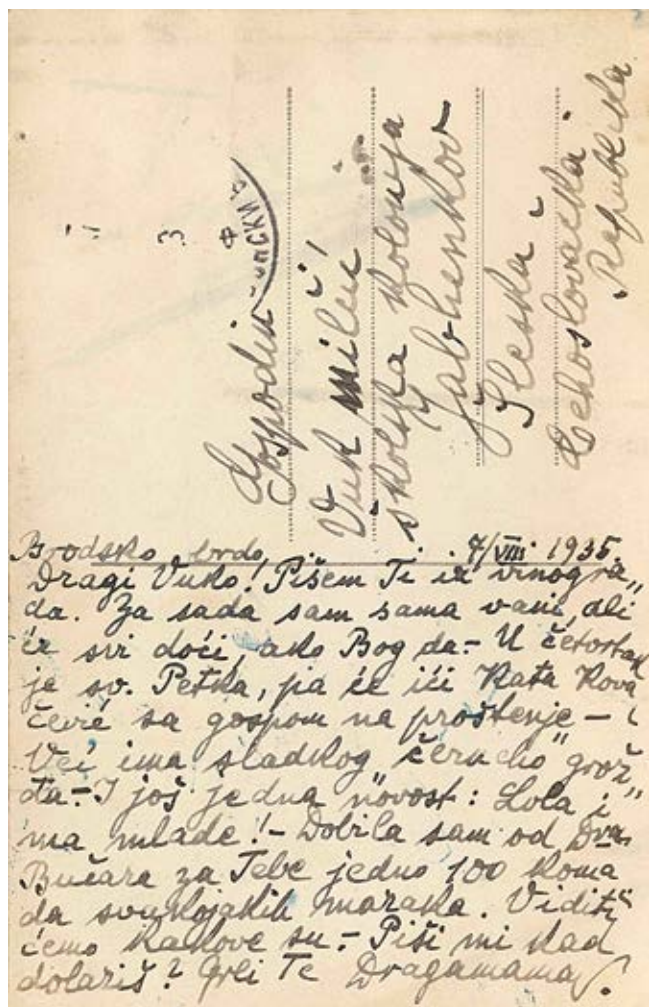 Gospodin
Vuk Milčić
školska kolonija
Jablunkov
Šleska
Čehoslovačka
Republika
Brodsko brdo, 7/VIII 1935.
Dragi Vuko! Pišem Ti iz vinogra„
da. Za sada sam sama vani, ali
će svi doći, ako Bog da.- U četvrtak
je sv. Petka, pa će ići Kata Kova
čević sa gospom na proštenje -
Već ima sladkog „černcho" grož„
đa.- I još jedna novost: Lola i„
ma mlade!- Dobila sam od Dra.
Bučara za Tebe jedno 100 koma
da svakojakih maraka. Vidit
ćemo kakove su.- Piši mi kad
dolaziš? Grli Te Dragamama